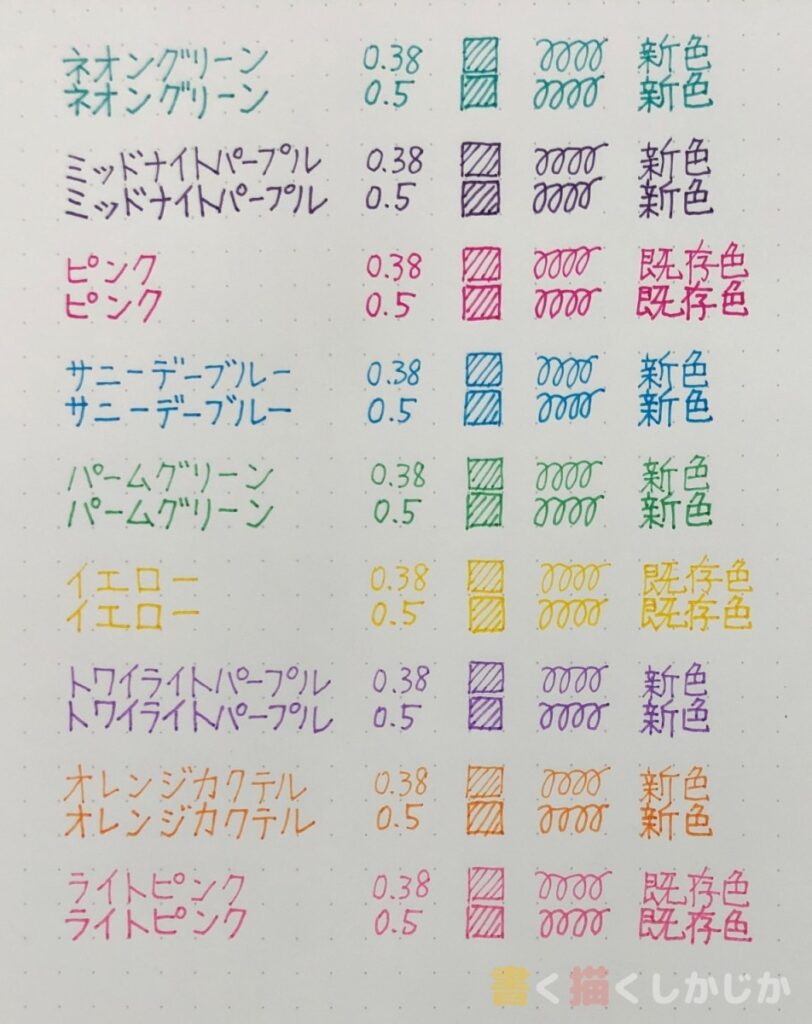 ネオングリーン 0.38 新色
ネオングリーン 0.5 新色
ミッドナイトパープル 0.38 新色
ミッドナイトパープル 0.5 新色
ピンク 0.38 既存色
ピンク 0.5 既存色
サニーデーブルー 0.38 新色
サニーデーブルー 0.5 新色
パームグリーン 0.38 新色
パームグリーン 0.5 新色
イエロー 0.38 既存色
イエロー 0.5 既存色
トワイライトパープル 0.38 新色
トワイライトパープル 0.5 新色
オレンジカクテル 0.38 新色
オレンジカクテル 0.5 新色
ライトピンク 0.38 既存色
ライトピンク 0.5 既存色
書く描くしかじか